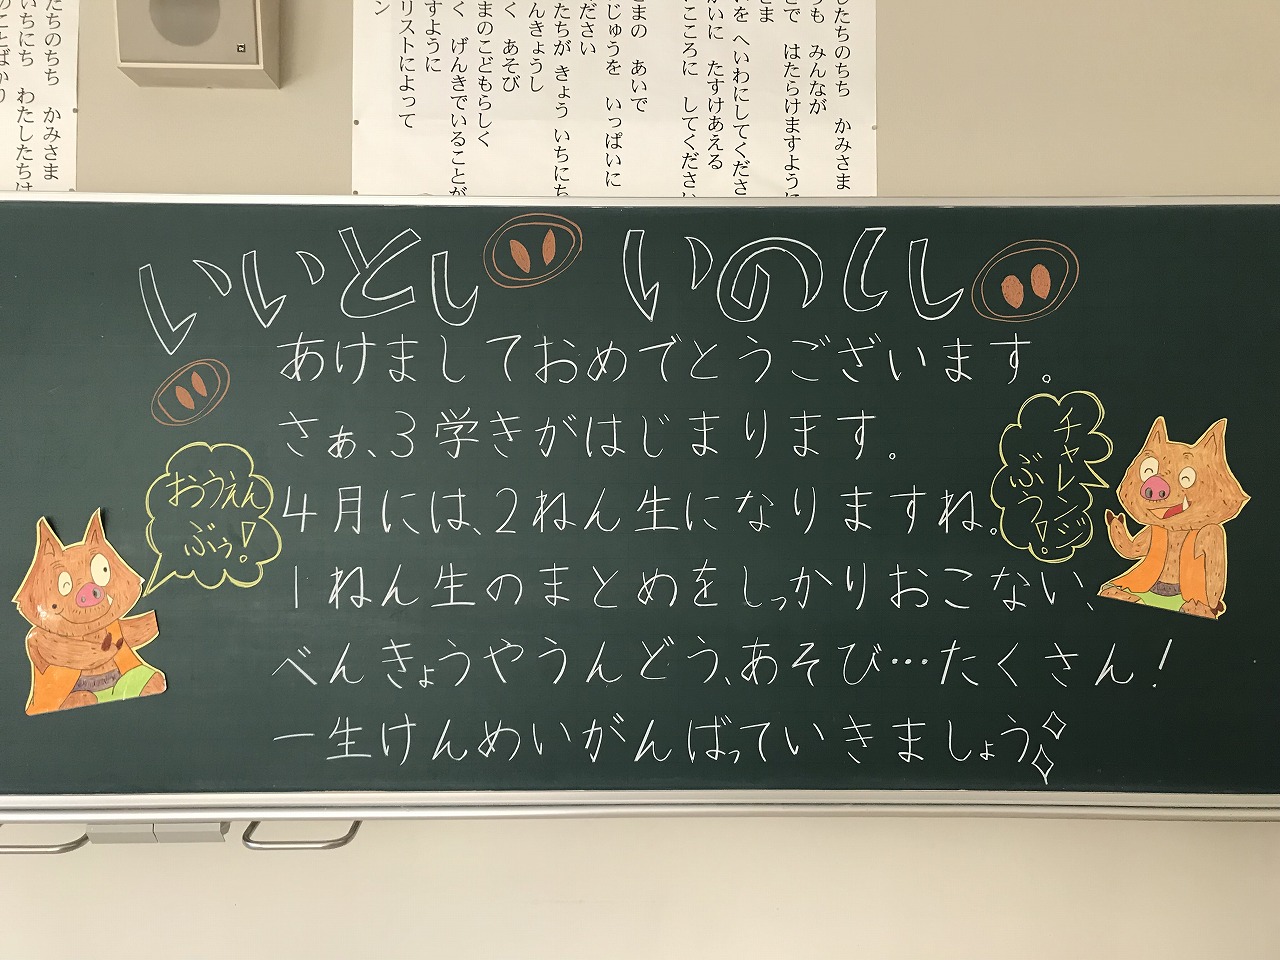 したちのちち　かみさま
うも　みんなが
で　はたらけますように
さま
を　へいわにしてくださ
がいに　たすけあえる
こころに　してください
さまの　あいで
じゅうを　いっぱいに
ださい
たちが きょう いちにち
んきょうし
く　あそび
まのこどもらしく
く　げんきでいることが
すように
リストによって
ン
たちのちち　かみさま
いちにち　わたしたちは
のことばかり
いいとし いのしし
あけましておめでとうございます。
さぁ、3学きがはじまります。
4月には、2ねん生になりますね。
1ねん生のまとめをしっかりおこない、
べんきょうやうんどう、あそび…たくさん!
一生けんめいがんばっていきましょう
おうえん
ぶぅ!
チャレンジ
ぶう!